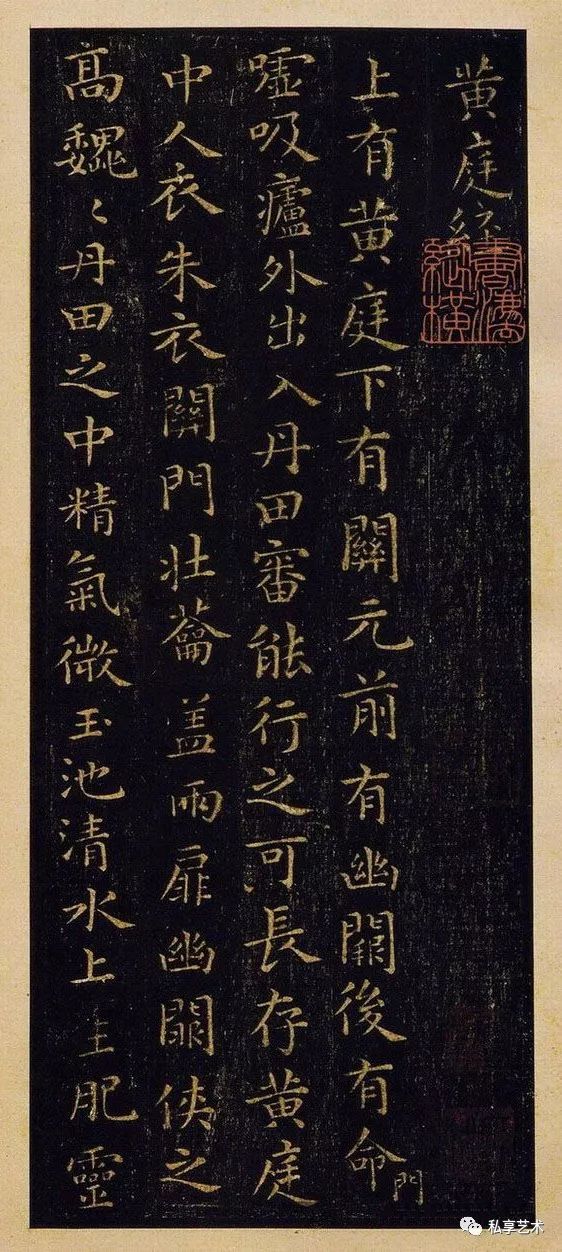 黄庭經
上有黄庭下有關元前有幽闕後有命門
嘘吸廬外出入丹田審能行之可長存黄庭
中人衣朱衣關門壯蘥盖兩扉幽闕俠之
髙巍〻丹田之中精氣微玉池清水上生肥靈
私享艺术